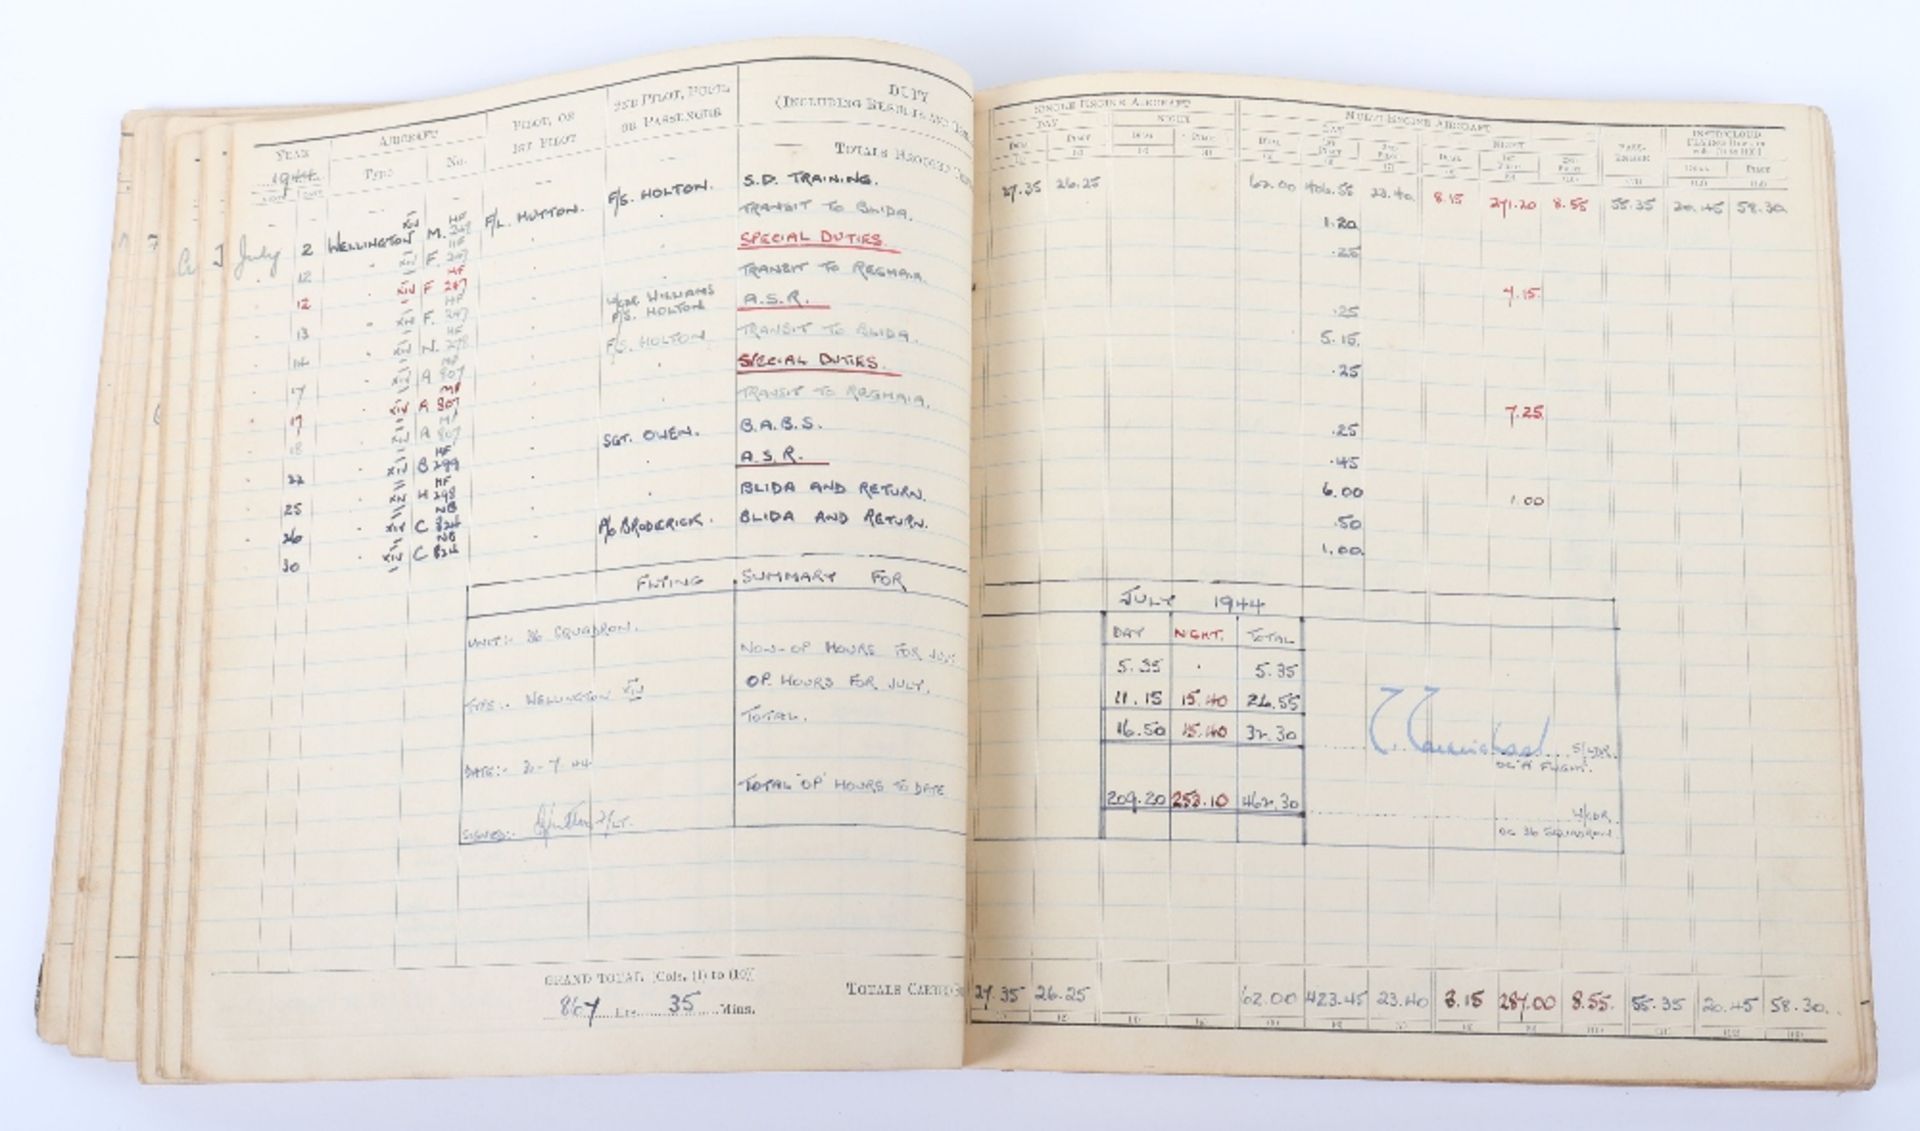 YEAR AIRCRAFT PILOT, OR 2ND PILOT, PUPIL DUTY
1944 Type No. 1ST PILOT OR PASSENGER (INCLUDING RESULTS AND
— — — — — TOTALS BROUGHT
July 2 WELLINGTON XIV M. HF 247 F/L. HUTTON. F/S. HOLTON. S.D. TRAINING.
12 " XIV F. HF 247 " " TRANSIT TO BLIDA.
12 " XIV F HF 247 " " SPECIAL DUTIES.
13 " XIV F. HF 247 " " TRANSIT TO REGHAIA.
14 " XIV N. HF 298 " W/CDR WILLIAMS F/S. HOLTON A.S.R.
17 " XIV A 807 " F/S. HOLTON TRANSIT TO BLIDA.
17 " XIV A 807 " " SPECIAL DUTIES.
18 " XIV A 807 " " TRANSIT TO REGHAIA.
22 " XIV B HF 299 " SGT. OWEN. B.A.B.S.
25 " XIV H HF 298 " " A.S.R.
26 " XIV C NB 824 " " BLIDA AND RETURN.
30 " XIV C NB 824 " P/O BRODERICK. BLIDA AND RETURN.
FLYING SUMMARY FOR
UNIT:- 36 SQUADRON.
NON-OP HOURS FOR JULY
TYPE:- WELLINGTON XIV
OP. HOURS FOR JULY.
TOTAL.
DATE:-
TOTAL 'OP' HOURS TO DATE
SIGNED:- F/LT.
GRAND TOTAL [Cols. (1) to (10)]
867 Hrs. 35 Mins.
TOTALS CARRIED
SINGLE-ENGINE AIRCRAFT MULTI-ENGINE AIRCRAFT PASS-ENGER INSTR/CLOUD
DAY NIGHT DAY NIGHT FLYING
DUAL PILOT DUAL PILOT DUAL 1ST PILOT 2ND PILOT DUAL 1ST PILOT 2ND PILOT DUAL PILOT
27.35 26.25 62.00 406.55 23.40 8.15 271.20 8.55 55.35 20.45 58.30
1.20
.25
7.15
.25
5.15
.25
7.25
.25
.45
6.00 1.00
.50
1.00
JULY 1944
DAY NGHT. TOTAL
5.35 . 5.35
11.15 15.40 26.55
16.50 15.40 32.30
S/LDR.
OC 'A' FLIGHT.
209.20 253.10 462.30
W/CDR
OC 36 SQUADRON
27.35 26.25 62.00 423.45 23.40 8.15 287.00 8.55 55.35 20.45 58.30